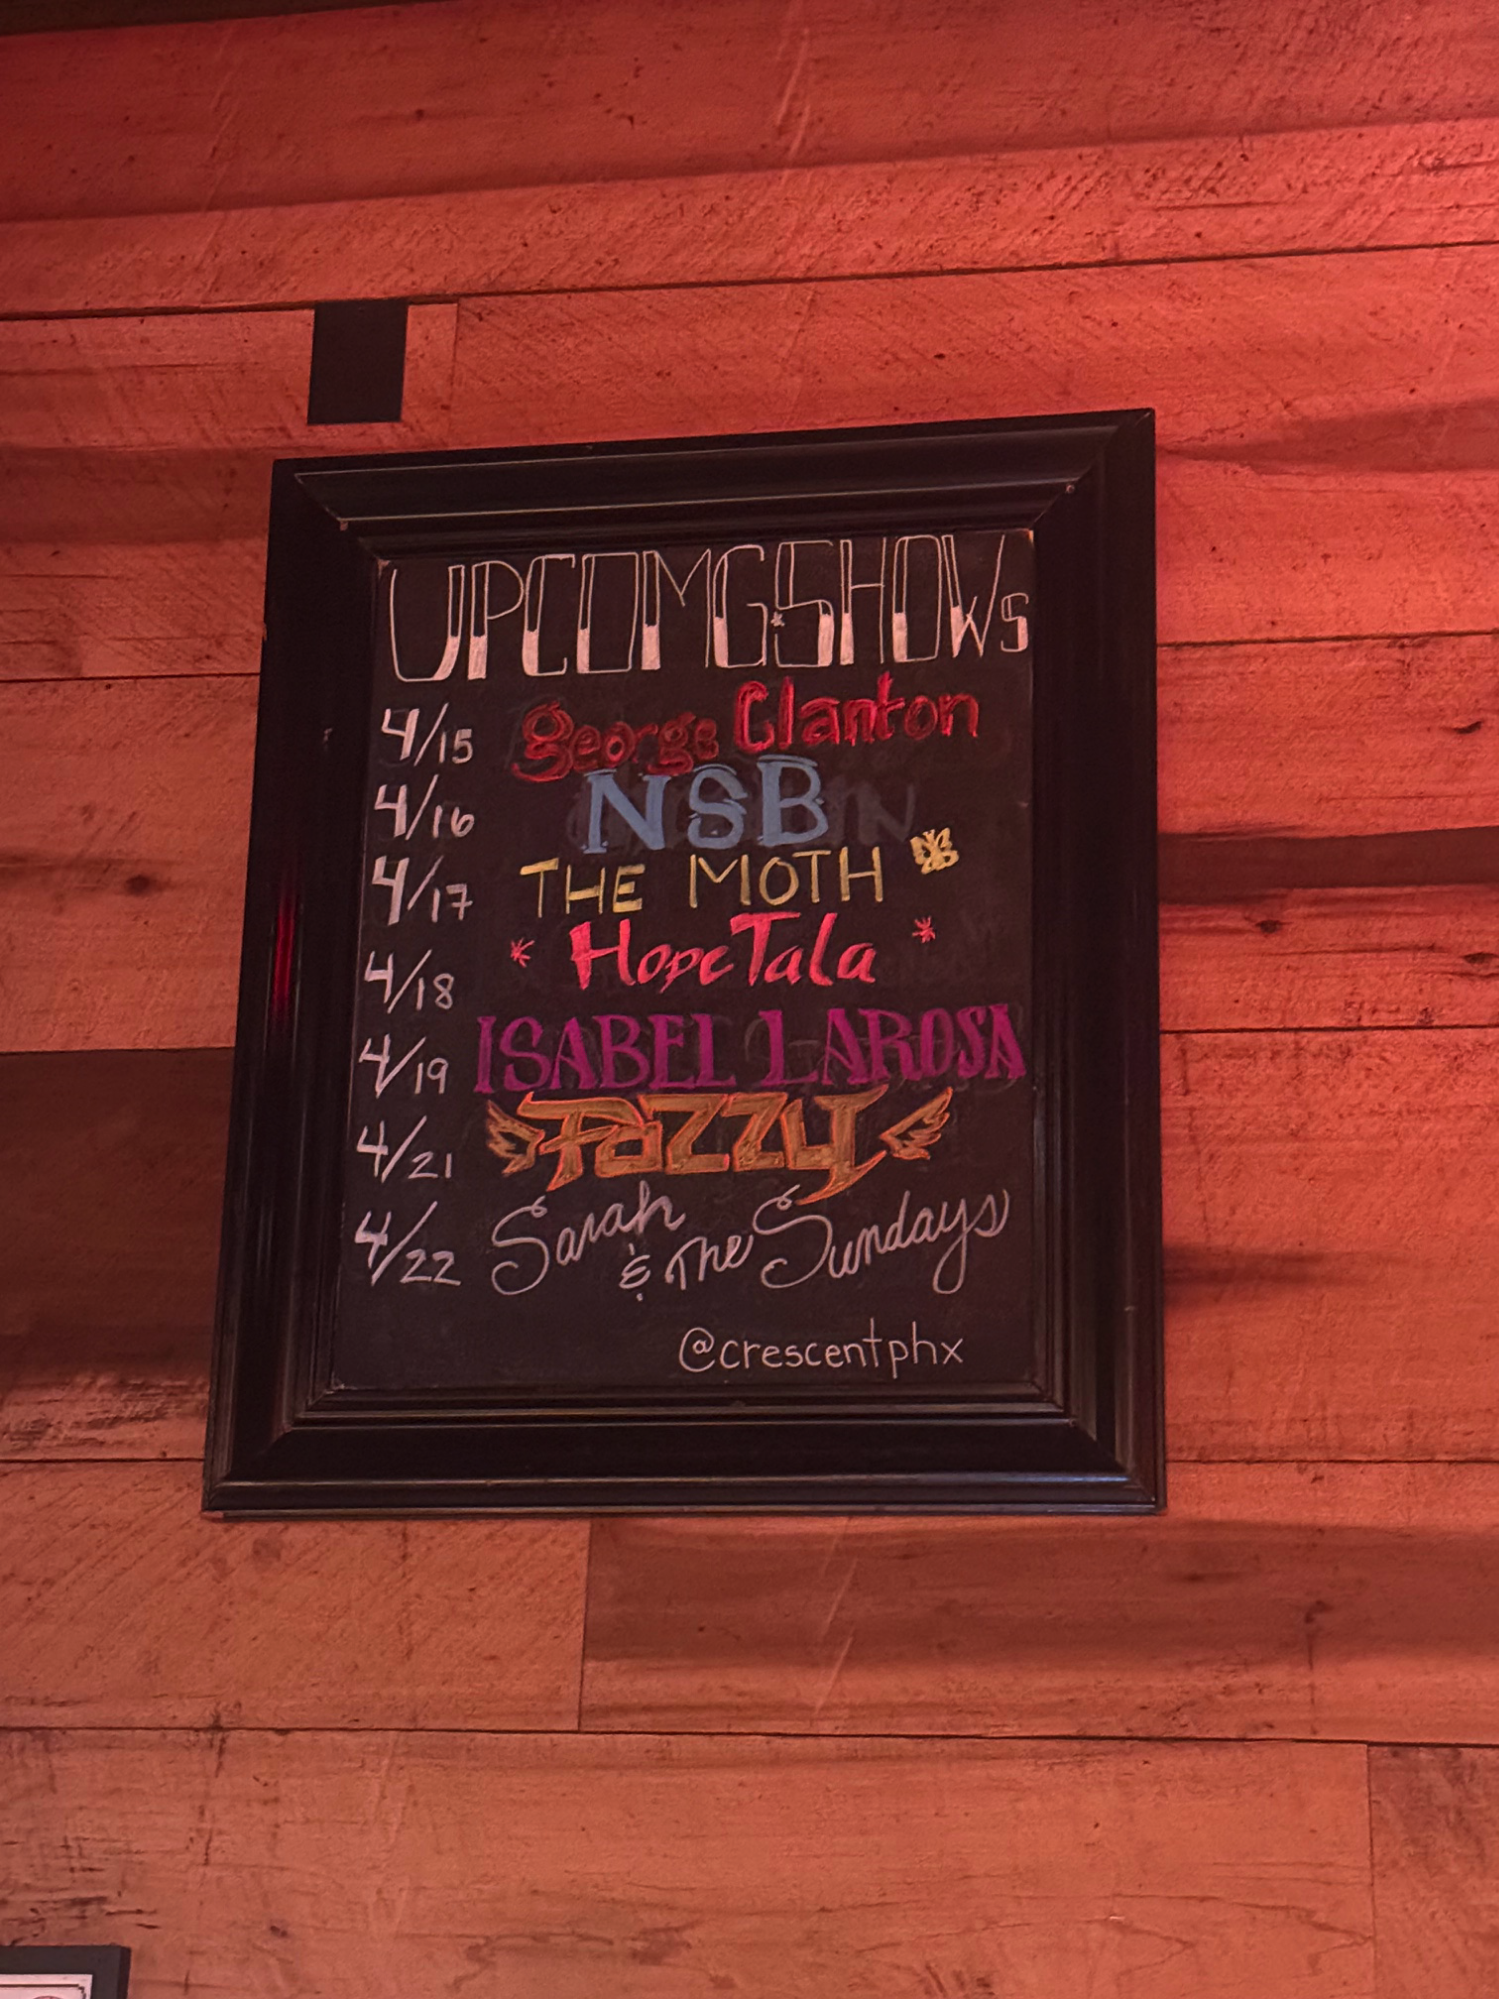 UPCOMG*SHOWS
4/15 George Clanton
4/16 NSB
4/17 THE MOTH
4/18 * Hope Tala *
4/19 ISABEL LAROSA
4/21 Pazzy
4/22 Sarah & The Sundays
@crescentphx